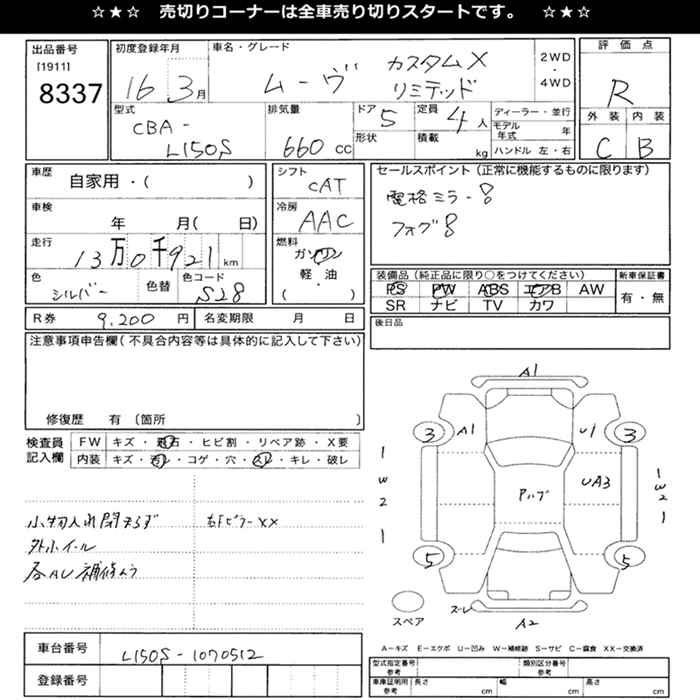 ☆★☆ 売切りコーナーは全車売り切りスタートです。 ☆★☆
出品番号
[1911]
8337
初度登録年月
16 3月
車名・グレード
ムーヴ カスタムX リミテッド
2WD
・
4WD
評価点
R
外装 内装
C B
型式
CBA-
L150S
排気量
660 cc
ドア 5
形状
定員 4人
積載 kg
ディーラー・並行
モデル年式 年
ハンドル 左・右
車歴
自家用・( )
車検
年 月( 日)
走行
13万0千921km
色
シルバー
色替
色コード
S28
シフト
CAT
冷房
AAC
燃料
ガソリン
軽・油
( )
セールスポイント(正常に機能するものに限ります)
電格ミラー
フォグ
装備品(純正品に限り○をつけてください)
PS PW ABS エアB AW
SR ナビ TV カワ
新車保証書
有・無
後日品
R券 9,200円
名変期限 月 日
注意事項申告欄(不具合内容等は具体的に記入して下さい)
修復歴 有 (箇所 )
検査員
記入欄
FW キズ・飛石・ヒビ割・リペア跡・X要
内装 キズ・汚レ・コゲ・穴・スレ・キレ・破レ
小物入れ閉まらず
外ホイール
各AU補修ムラ
右Fピラーxx
A1
3 A1 U1 3
1
W
2
1
アルブ
UA3
1
W
2
1
5 5
スペア
スレ
A2
A-キズ E-エクボ U-凹み W-補修跡 S-サビ C-腐食 XX-交換済
車台番号
L150S-1070512
登録番号
型式指定番号
参考
類別区分番号
参考
車庫証明用
参考
長さ cm
幅 cm
高さ cm